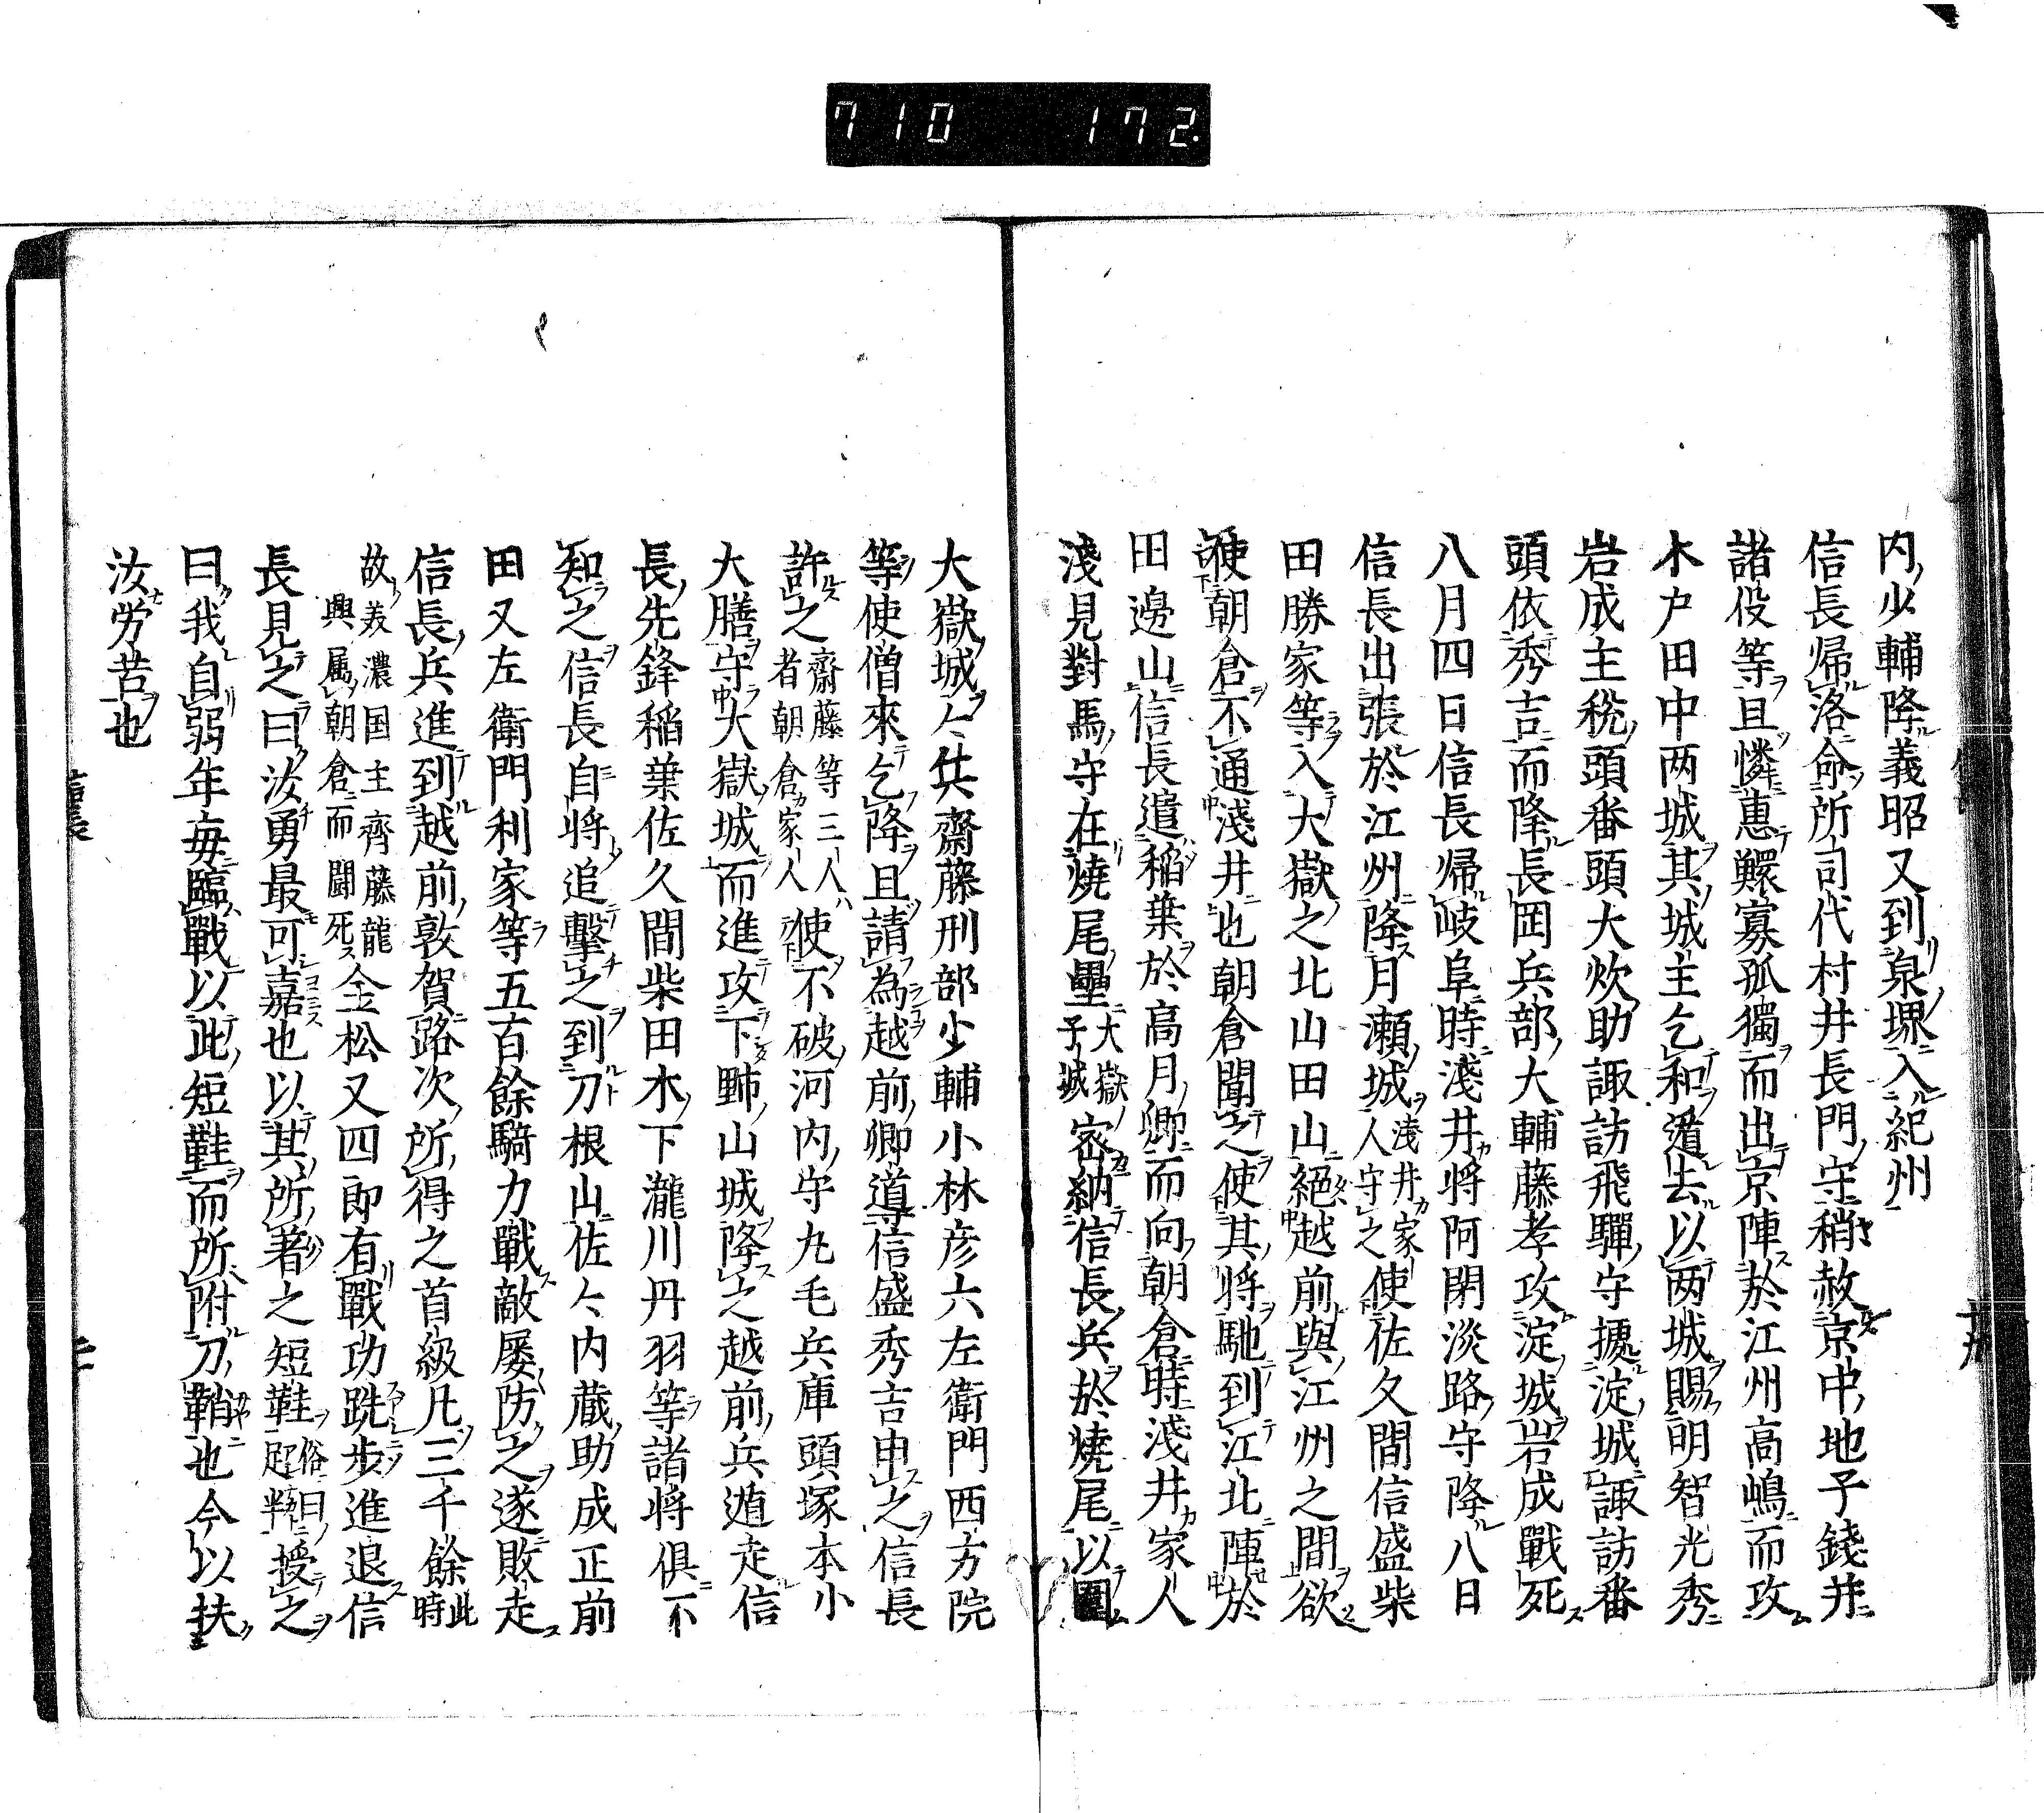 710 172.
内少輔降義昭又到泉堺入紀州
信長帰洛命所司代村井長門守稍赦京中地子錢并
諸役等且憐惠鰥寡孤獨而出京陣於江州高嶋而攻
木戸田中两城其城主乞和遁去以两城賜明智光秀
岩成主税頭番頭大炊助諏訪飛驒守據淀城諏訪番
頭依秀吉而降長岡兵部大輔藤孝攻淀城岩成戰死
八月四日信長帰岐阜時淺井将阿閉淡路守降八日
信長出張於江州降月瀬城淺井家人守之使佐久間信盛柴
田勝家等入大嶽之北山田山絕越前與江州之間欲
使朝倉不通淺井也朝倉聞之使其将馳到江北陣於
田邊山信長遣稲葉於高月鄉而向朝倉時淺井家人
淺見對馬守在燒尾壘大嶽子城密納信長兵於燒尾以圍
大嶽城々兵齋藤刑部少輔小林彦六左衛門西方院
等使僧來乞降且請為越前鄉導信盛秀吉申之信長
許之齋藤等三人者朝倉家人使不破河内守九毛兵庫頭塚本小
大膳守大嶽城而進攻下野山城降之越前兵遁走信
長先鋒稲葉佐久間柴田木下瀧川丹羽等諸将俱不
知之信長自将追擊之到刀根山佐々内蔵助成正前
田又左衛門利家等五百餘騎力戰敵屡防之遂敗走
信長兵進到越前敦賀路次所得之首級凡三千餘此時
故美濃国主齊藤龍興属朝倉而闘死金松又四郎有戰功跣步進退信
長見之曰汝勇最可嘉也以其所著之短鞋俗曰足半授之
曰我自弱年毎臨戰以此短鞋而所附刀鞘也今以扶
汝労苦也